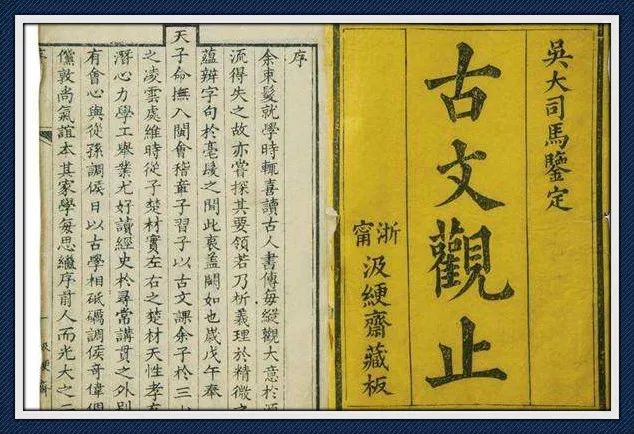 吳大司馬鑑定
古文觀止
浙甯
汲綆齋藏板
序
余束髮就學時輒喜讀古人書傳每縱觀大意於源
流得失之故亦嘗探其要領若乃析義理於精微之
蘊辨字句於毫髮之間此衷蓋闕如也歲戊午奉
天子命撫入閩會稽章子習子以古文課余子於三
之凌雲處維時從子楚材實左右之楚材天性孝友
潛心力學工舉業尤好讀經史於尋常講貫之外別
有會心與從孫調侯日以古學相砥礪調侯奇偉倜
儻敦尚氣誼本其家學每思繼序前人而光大之二